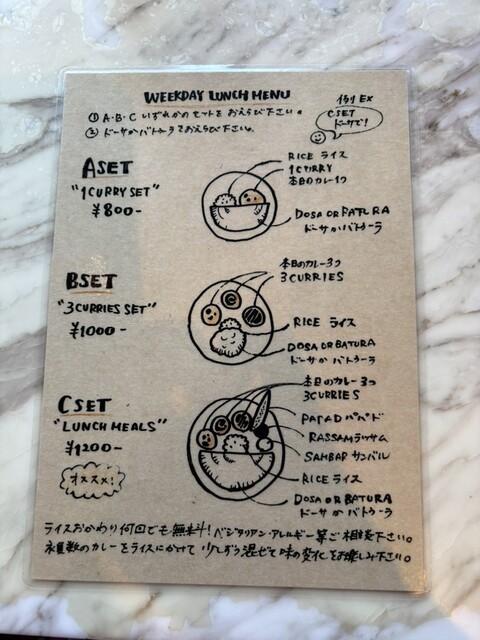 WEEKDAY LUNCH MENU
① A・B・C いずれかのセットをおえらび下さい。
② ドーサかバトゥーラでおえらび下さい。
例 EX
CSET
ドーサで!
ASET
"1CURRY SET"
¥800-
RICE ライス
1CURRY
本日のカレー1つ
DOSA OR BATURA
ドーサかバトゥーラ
BSET
"3CURRIES SET"
¥1000-
本日のカレー3つ
3CURRIES
RICE ライス
DOSA OR BATURA
ドーサか バトゥーラ
CSET
"LUNCH MEALS"
¥1200-
オススメ!
本日のカレー3つ
3CURRIES
PAPAD パパド
RASSAM ラッサム
SAMBAR サンバル
RICE ライス
DOSA OR BATURA
ドーサ か バトゥーラ
ライスおかわり何回でも無料!ベジタリアン・アレルギー等ご相談下さい。
複数のカレーをライスにかけて少しずつ混ぜて味の変化をお楽しみ下さい。